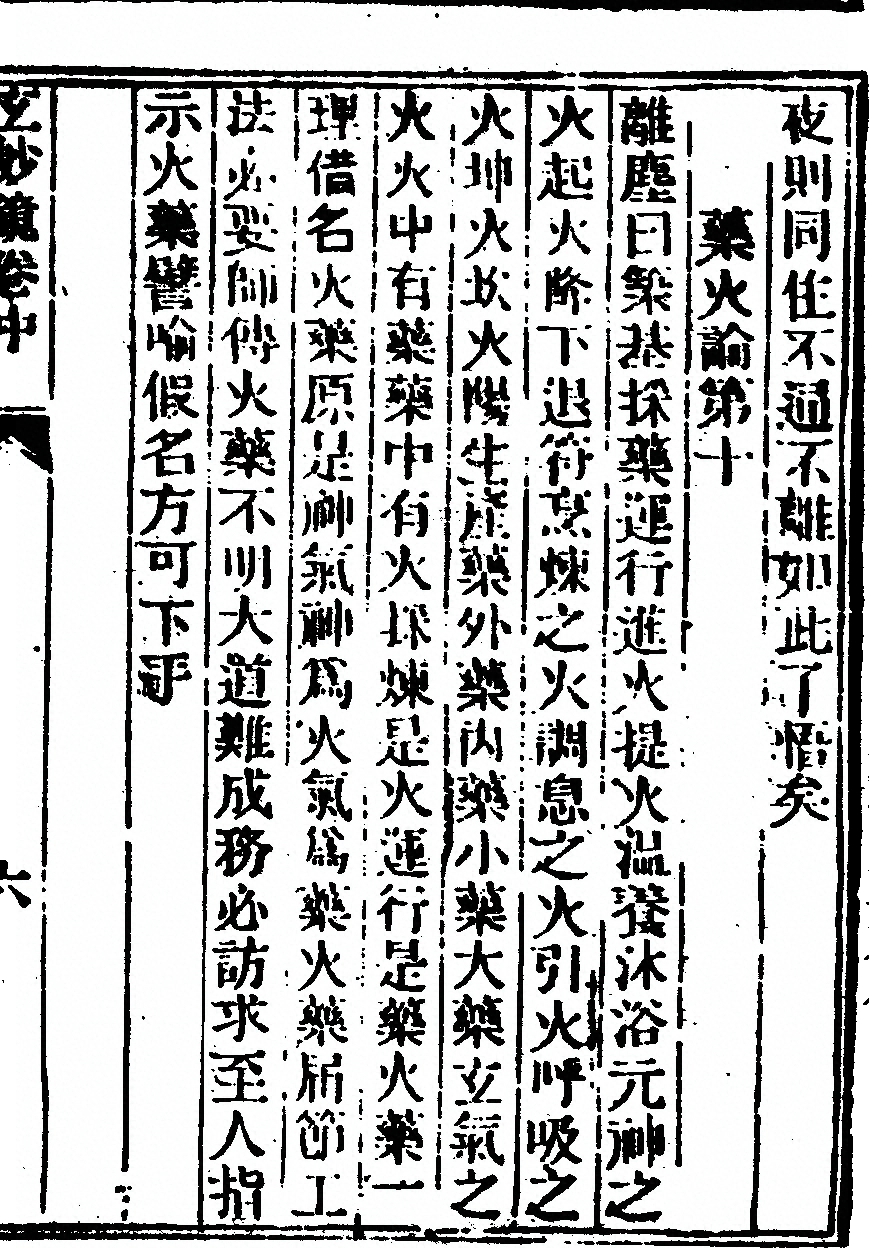 夜則同住不逼不離如此了矣
藥火論第十
離塵曰築基採藥運行進火提火溫養沐浴元神之
火起火降下退符烹煉之火調息之火引火呼吸之
火坤火坎火陽生產藥外藥內藥小藥大藥玄氣之
火火中有藥藥中有火採煉是火運行是藥火藥一
理借名火藥原是神氣神爲火氣爲藥火藥層節工
法必要師傳火藥不明大道難成務必訪求至人指
示火藥譬喻假名方可下手
玄妙鏡卷中
六